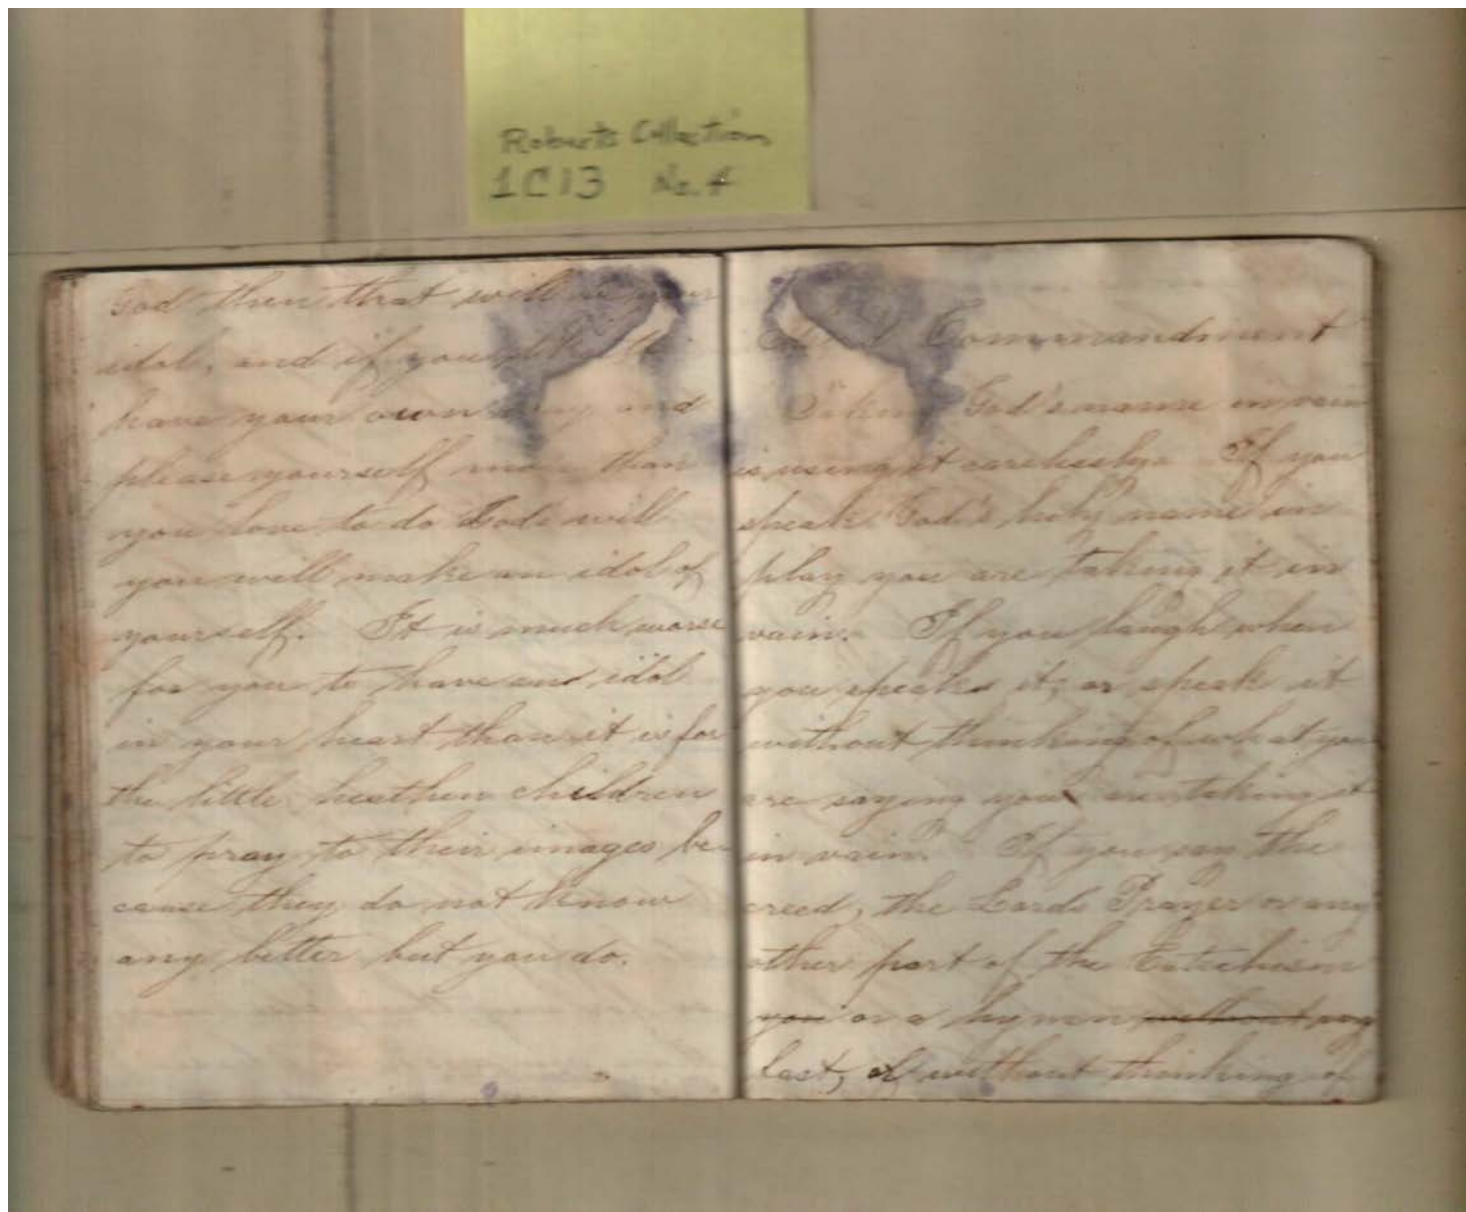 Roberts Collection
1C13 No. 4
God then that will be your
idol, and if you
have your own way and
please yourself more than
you love to do Gods will
you will make an idol of
yourself. It is much worse
for you to have an idol
in your heart than it is for
the little heathen children
to pray to their images be-
cause they do not know
any better but you do.
Commandment
Taking God's name in vain
is using it carelessly. If you
speak God's holy name in
play you are taking it in
vain. If you laugh when
you speak it, or speak it
without thinking of what you
are saying you are taking it
in vain. If you say the
creed, the Lords Prayer or any
other part of the Catechism
you or a hymn without any
last, of without thinking of